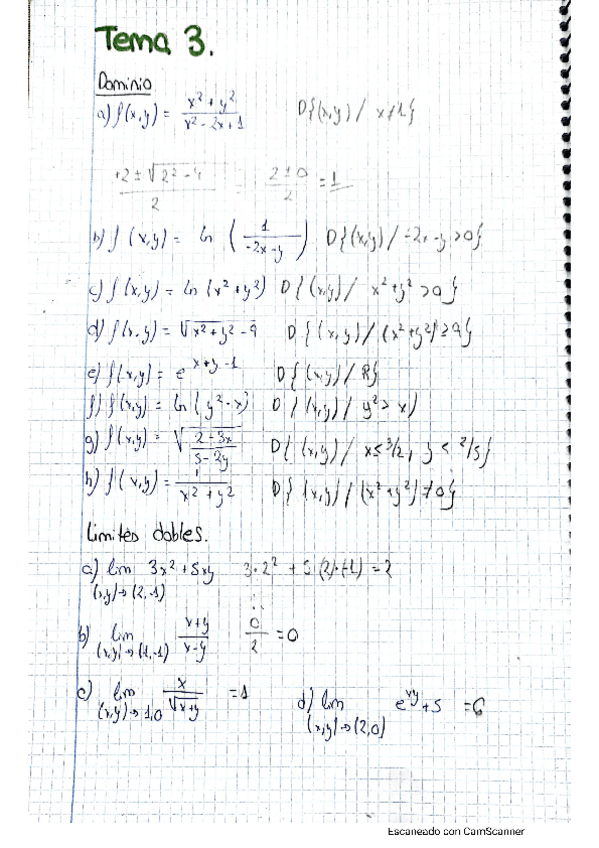 Tema 3.
Dominio
a) f(x,y) = x² + y² / x² - 2x + 1 D{(x,y) / x≠1}
+2 ± √2² - 4 / 2 = 2 ± 0 / 2 = 1
b) f(x,y) = ln (1 / -2x-y) D{(x,y) / -2x-y > 0}
c) f(x,y) = ln (x² + y²) D{(x,y) / x² + y² > 0}
d) f(x,y) = √x² + y² - 9 D{(x,y) / (x² + y²) ≥ 9}
e) f(x,y) = e^x+y-1 D{(x,y) / R}
f) f(x,y) = ln (y² - x) D{(x,y) / y² > x}
g) f(x,y) = √2-3x / 5-2y D{(x,y) / x ≤ 3/2, y < 2/5}
h) f(x,y) = 1 / x² + y² D{(x,y) / (x² + y²) ≠ 0}
Limites dobles.
a) lim 3x² + 5xy 3·2² + 5·(2)·(-1) = 2
(x,y)→(2,-1)
b) lim x+y / x-y 0 / 2 = 0
(x,y)→(1,-1)
c) lim x / √x+y = 1 d) lim e^xy + 5 = 6
(x,y)→1,0 (x,y)→(2,0)
Escaneado con CamScanner